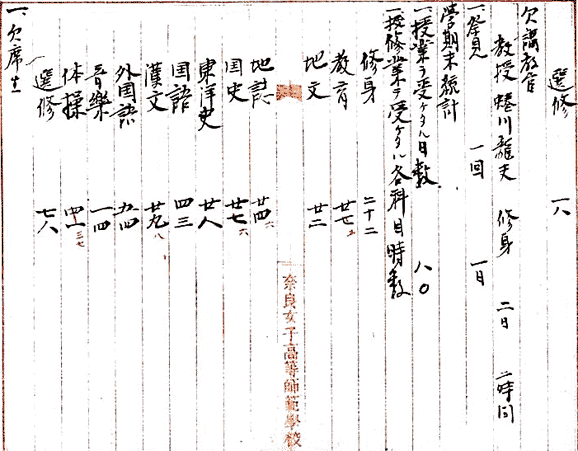 選修 一八
欠講教官
教授 蜷川龍夫 修身 二日 二時間
一、発見 一回 一日
学期末統計
一、授業ヲ受ケタル日数 八〇
一、授修業ヲ受ケタル各科目時数
修身 二十二
教育 廿七
地文 廿二
奈良女子高等師範學校
地誌 廿四 六
国史 廿七 六
東洋史 廿八
国語 四三
漢文 廿九 八
外国語 五四
音樂 一四
体操 四一 三七
選修 七八
一、欠席